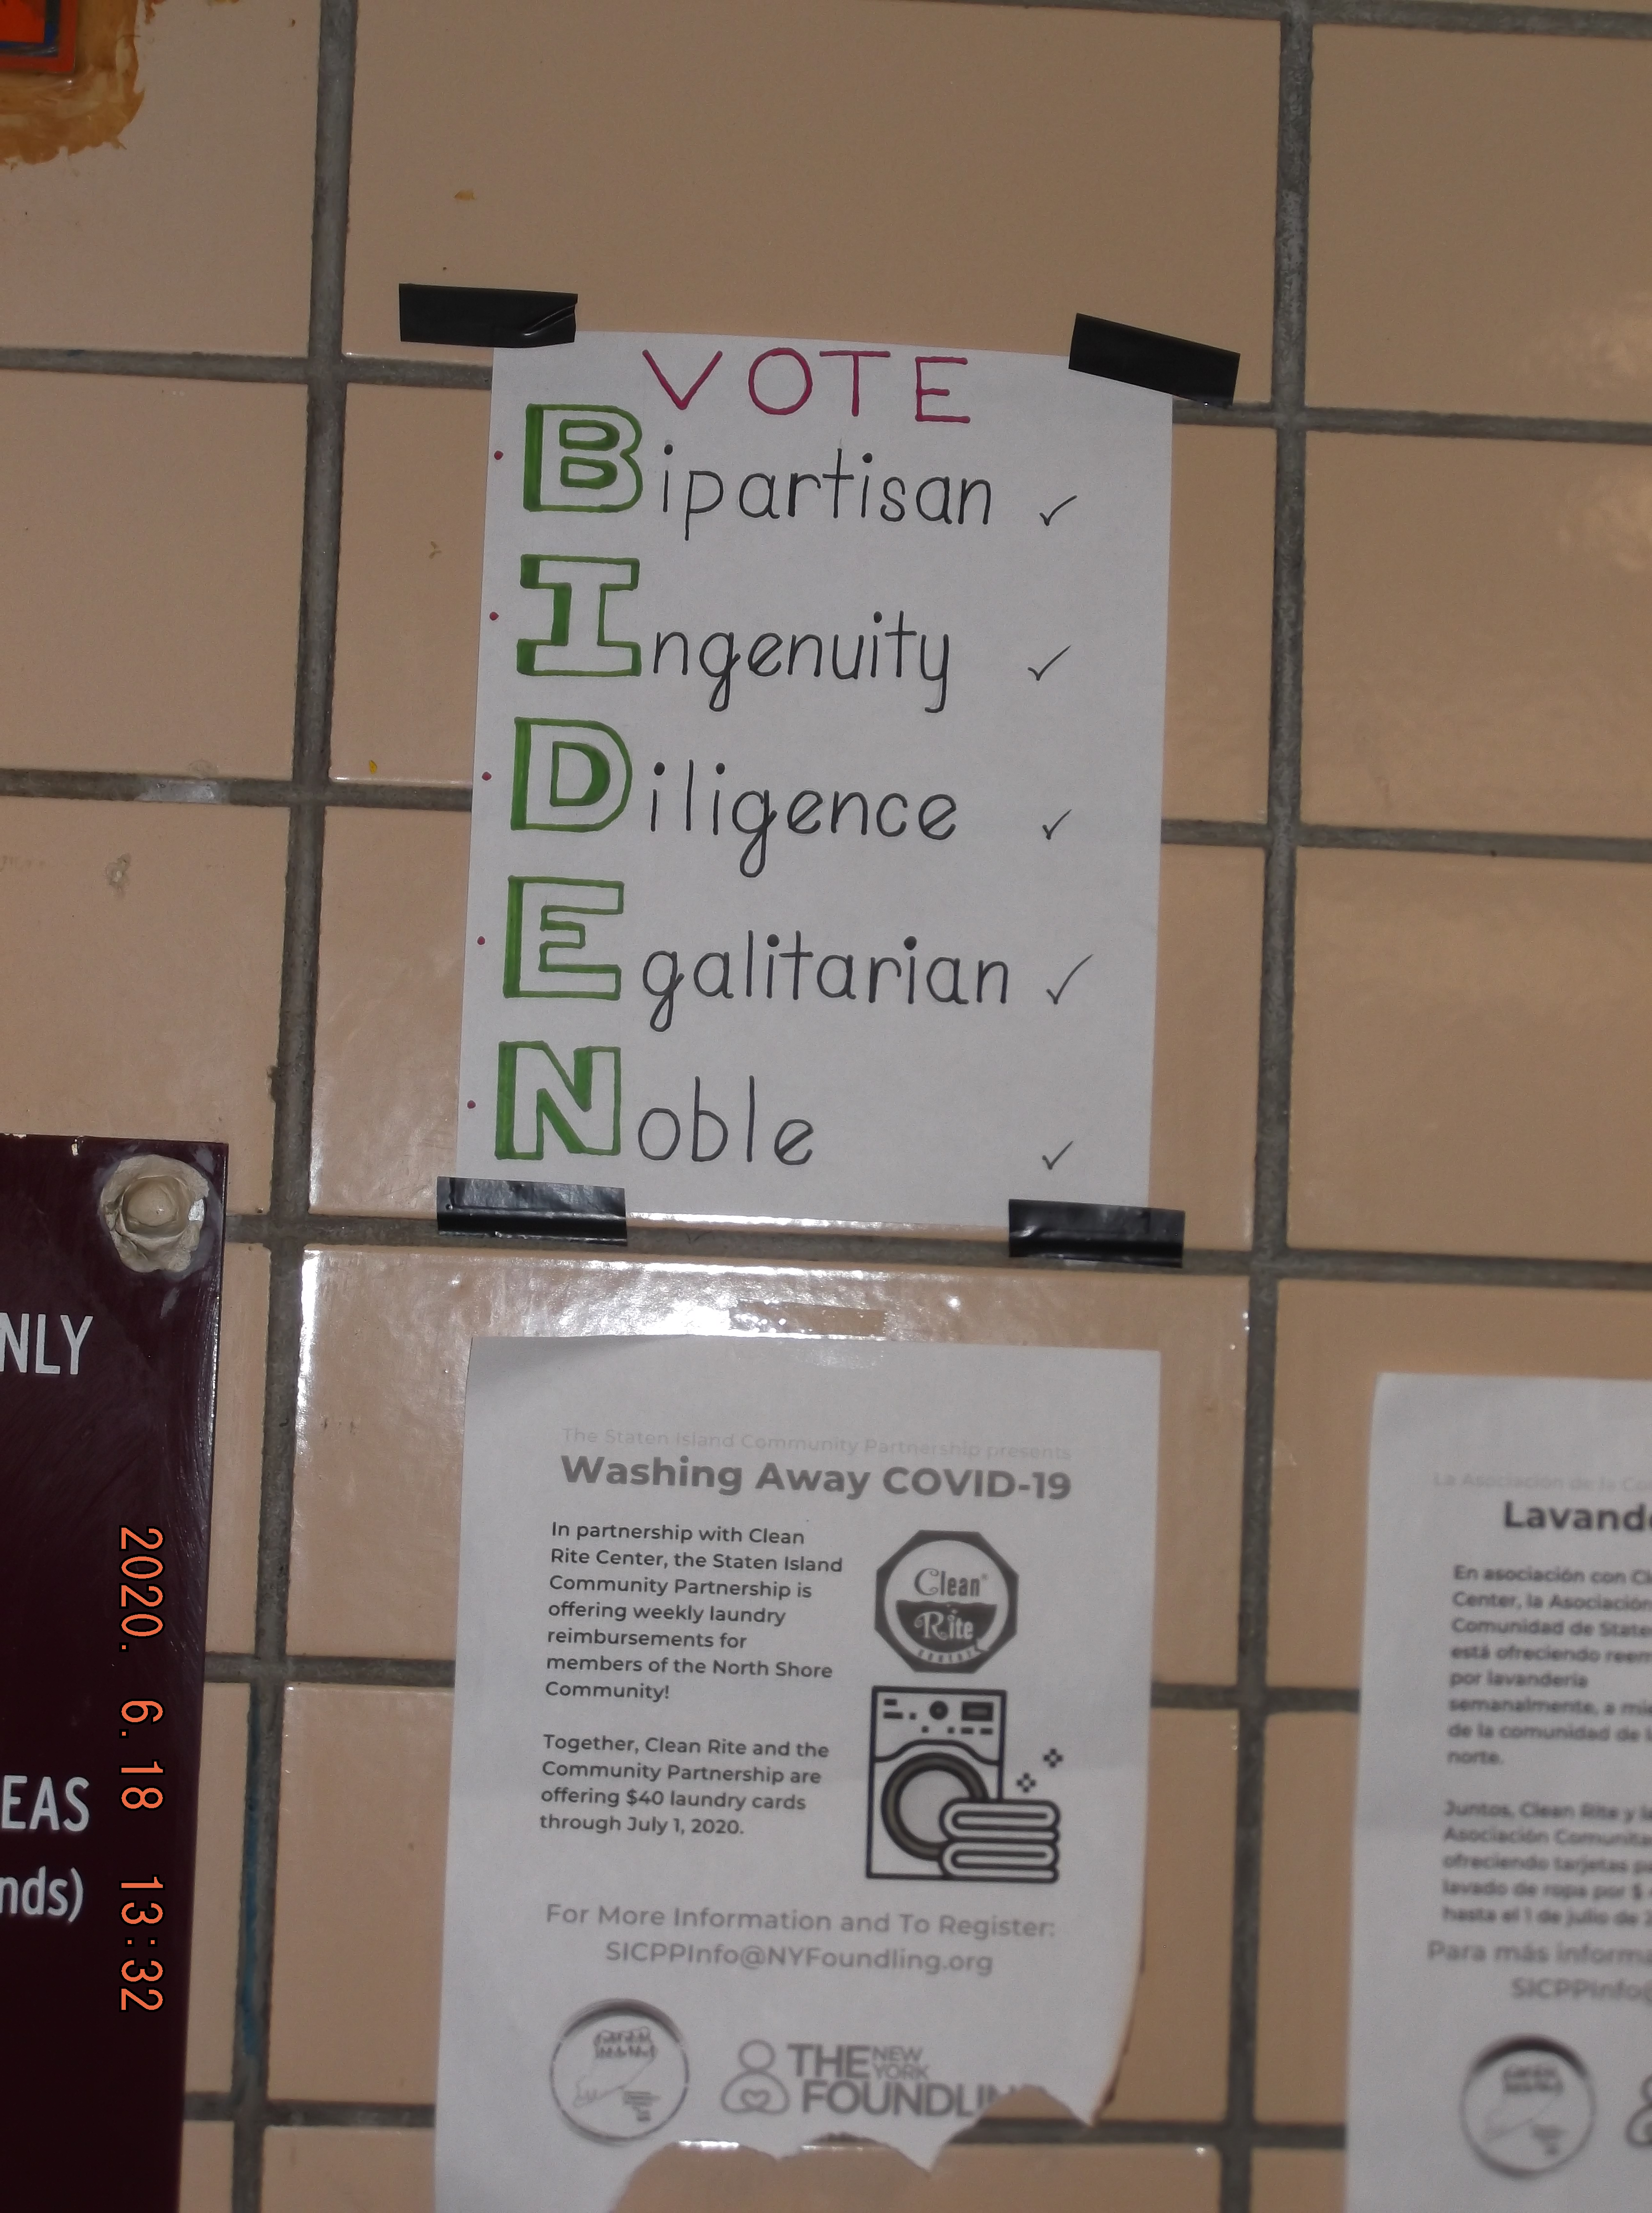 VOTE
Bipartisan ✓
Ingenuity ✓
Diligence ✓
Egalitarian ✓
Noble ✓
NLY
EAS
nds)
2020. 6.18 13:32
The Staten Island Community Partnership presents
Washing Away COVID-19
In partnership with Clean
Rite Center, the Staten Island
Community Partnership is
offering weekly laundry
reimbursements for
members of the North Shore
Community!
Together, Clean Rite and the
Community Partnership are
offering $40 laundry cards
through July 1, 2020.
Clean
Rite
CENTERS
For More Information and To Register:
SICPPInfo@NYFoundling.org
THE NEW
YORK
FOUNDLIN
La Asociación de la Co
Lavand
En asociación con Cl
Center, la Asociación
Comunidad de State
está ofreciendo reem
por lavandería
semanalmente, a mie
de la comunidad de l
norte.
Juntos, Clean Rite y la
Asociación Comunita
ofreciendo tarjetas p
lavado de ropa por $
hasta el 1 de julio de 2
Para más informa
SICPPInfo@